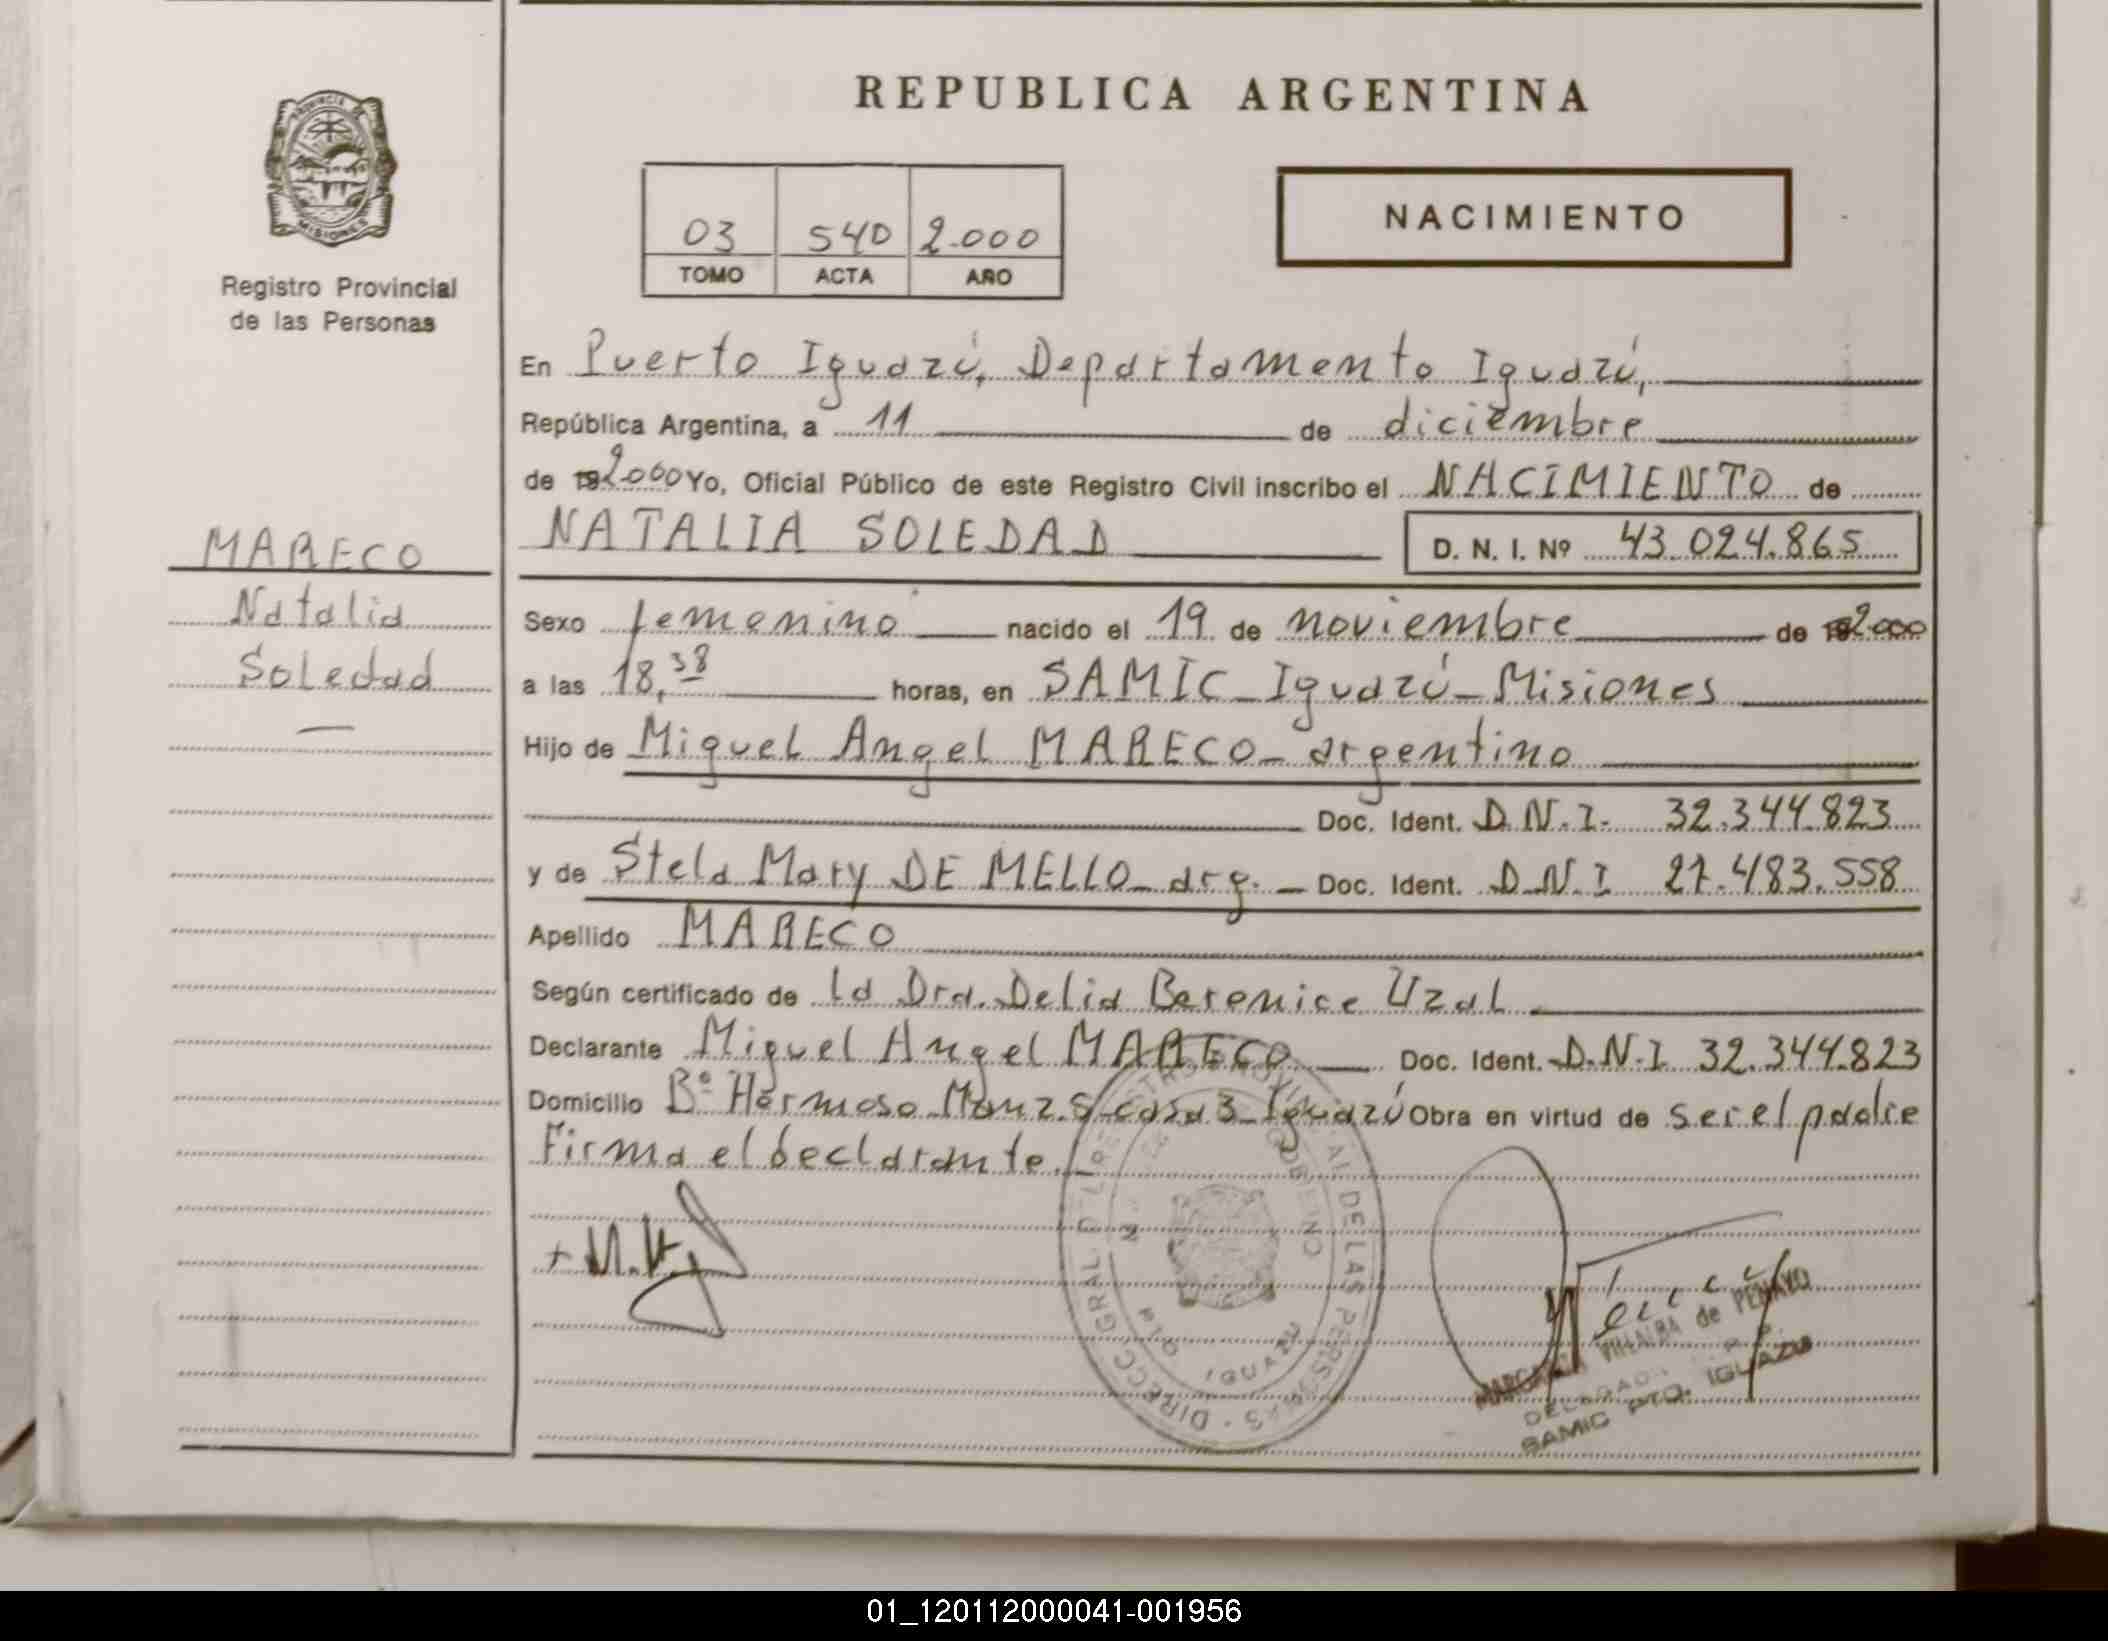 REPUBLICA ARGENTINA
PROVINCIA DE
MISIONES
Registro Provincial
de las Personas
03 540 2.000
TOMO ACTA AÑO
NACIMIENTO
En Puerto Iguazú, Departamento Iguazú,
República Argentina, a 11 de diciembre
de 192000 Yo, Oficial Público de este Registro Civil inscribo el NACIMIENTO de
NATALIA SOLEDAD D. N. I. Nº 43.024.865
MARECO
Natalia
Soledad
Sexo femenino nacido el 19 de noviembre de 192.000
a las 18,38 horas, en SAMIC - Iguazú - Misiones
Hijo de Miguel Angel MARECO - argentino
Doc. Ident. D.N.I. 32.344.823
y de Stela Mary DE MELLO - arg. - Doc. Ident. D.N.I 27.483.558
Apellido MARECO
Según certificado de la Dra. Delia Berenice Uzal
Declarante Miguel Angel MARECO Doc. Ident. D.N.I. 32.344.823
Domicilio Bº Hermoso Manz. S casa 3 - Iguazú Obra en virtud de ser el padre
Firma el declarante.
+ M.A.
DIRECC. GRAL. DEL REGISTRO PROVINCIAL DE LAS PERSONAS
GOBIERNO
IGUAZU
MARGARITA VILLALBA de PENAYO
DELEGADA R. P. P.
SAMIC PTO. IGUAZU
01_120112000041-001956